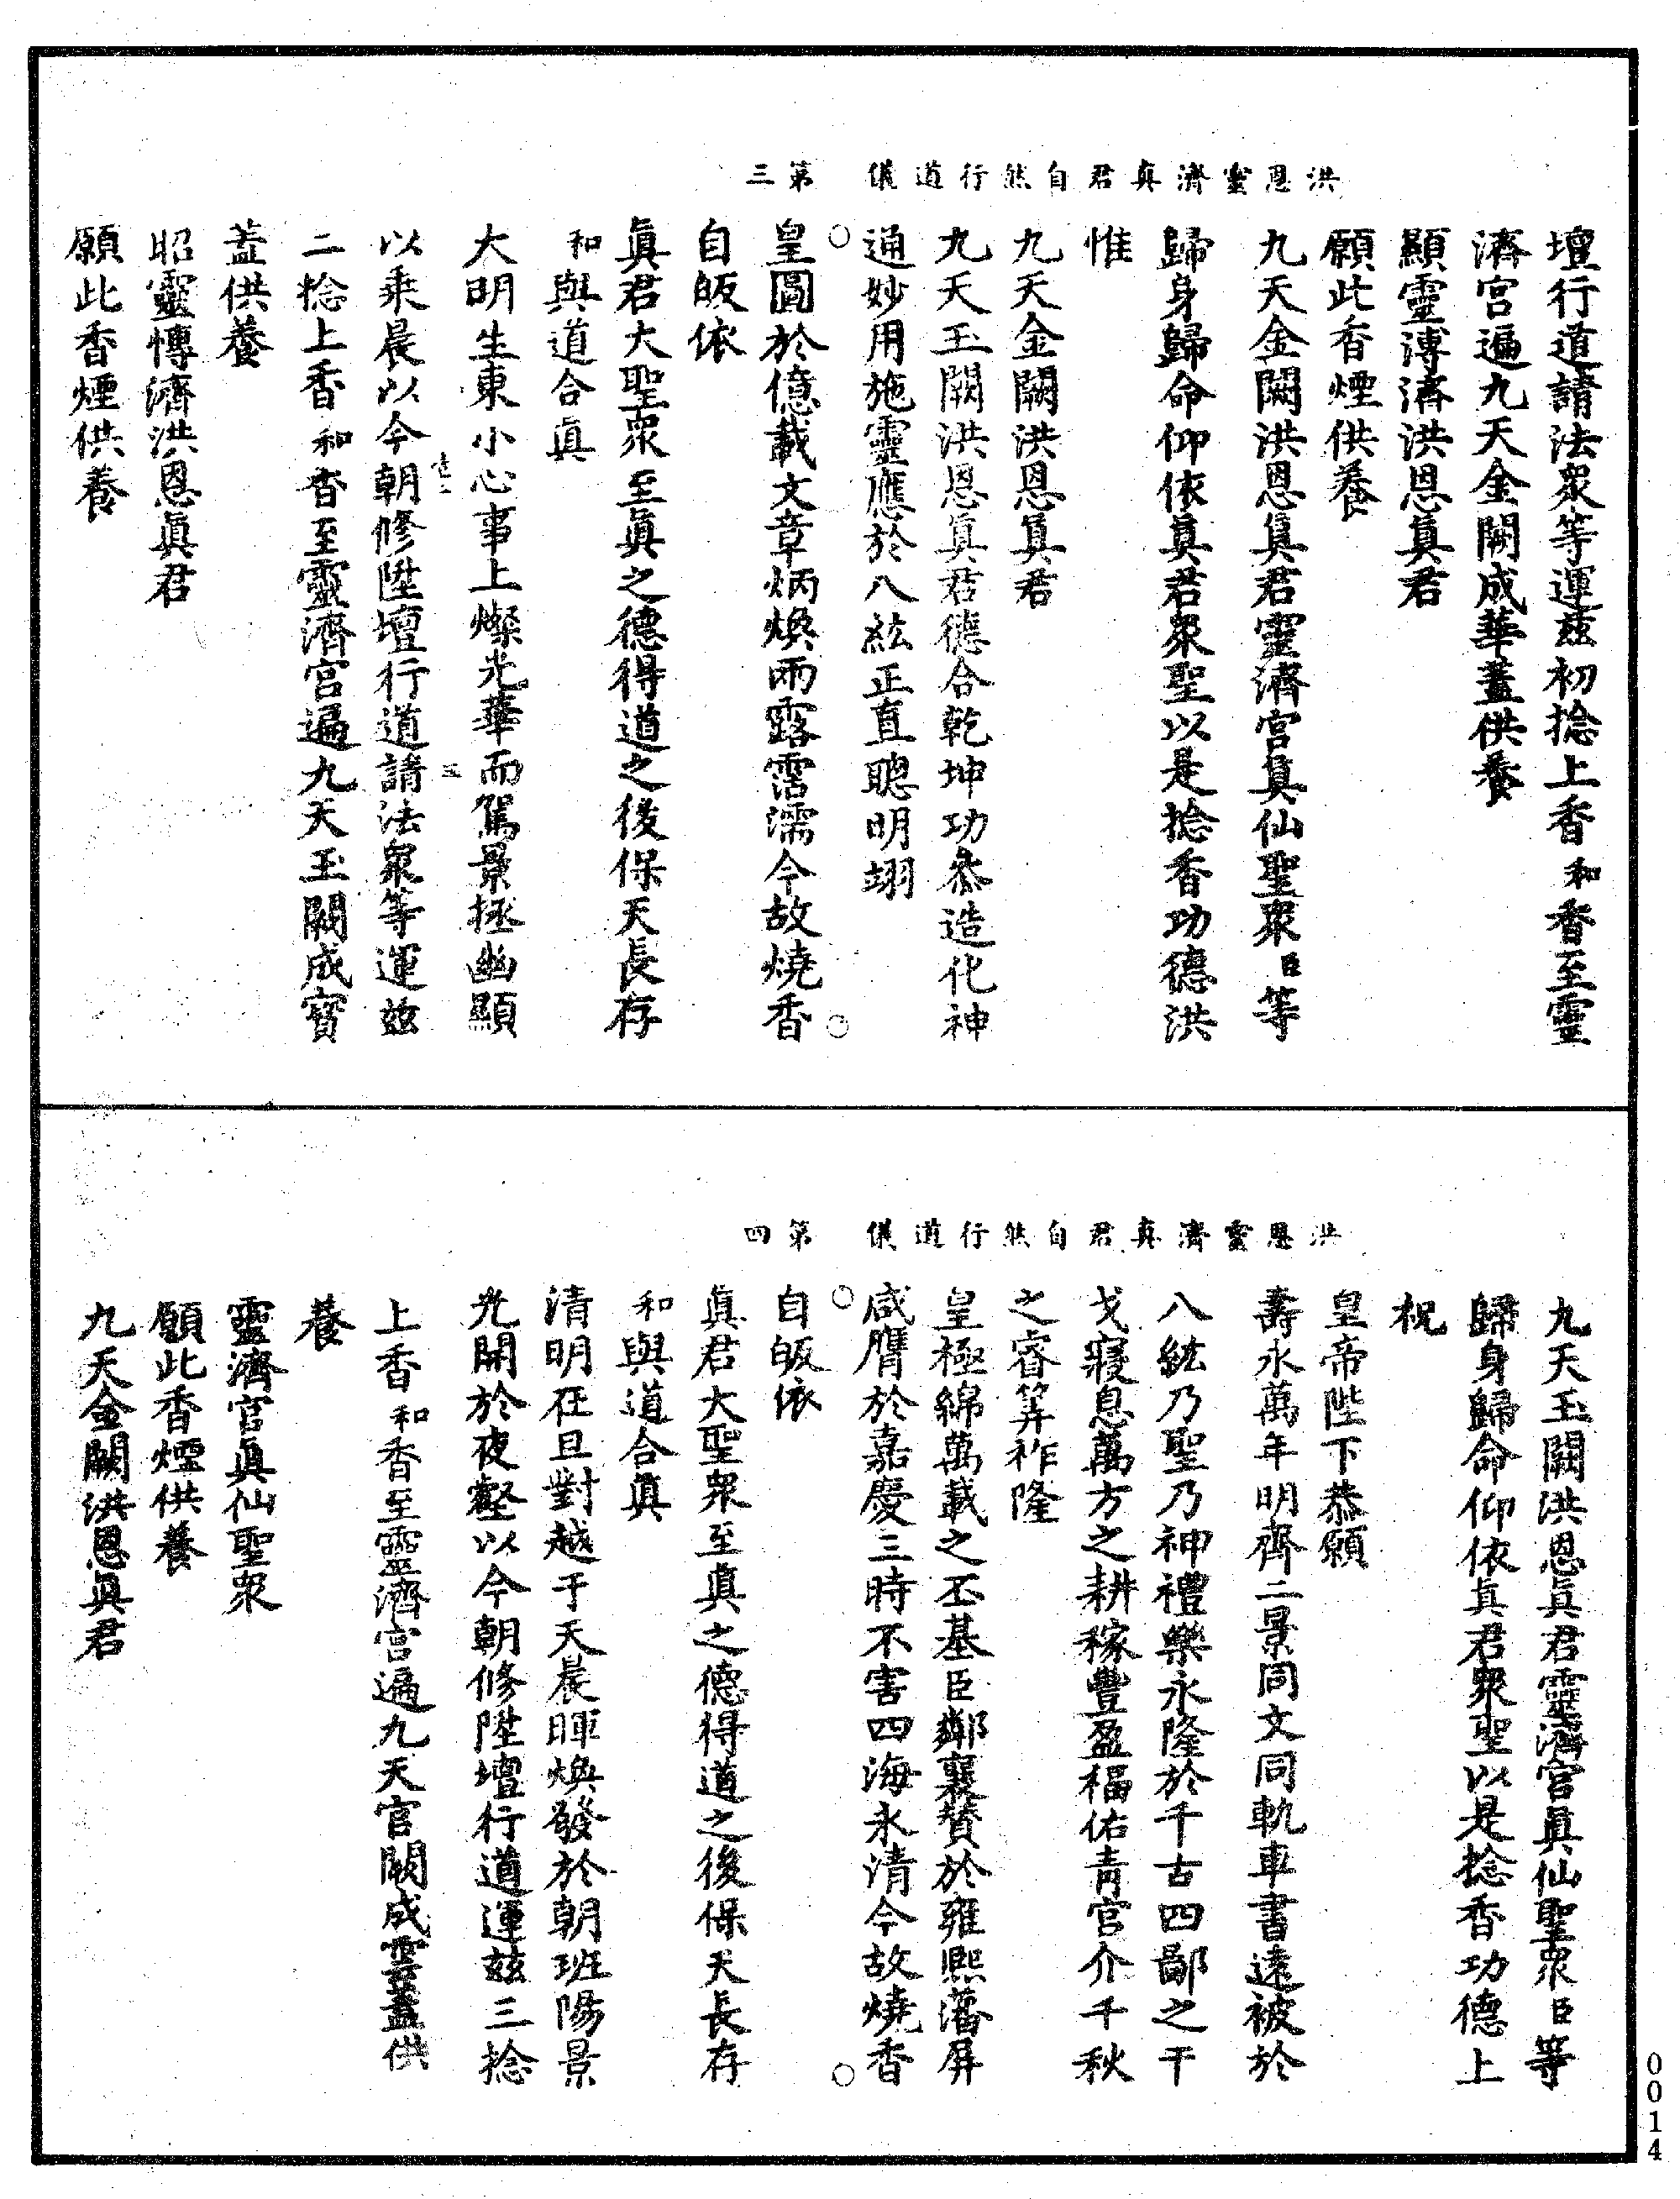 洪恩靈濟真君自然行道儀　第三
壇行道請法眾等運茲初捻上香和香至靈
濟宮遍九天金闕成華蓋供養
顯靈溥濟洪恩真君
願此香煙供養
九天金闕洪恩真君靈濟宮真仙聖眾臣等
歸身歸命仰依真君眾聖以是捻香功德洪
惟
九天金闕洪恩真君
九天玉闕洪恩真君德合乾坤功叅造化神
通妙用施靈應於八紘正直聰明翊
皇圖於億載文章炳煥雨露霑濡今故燒香
自皈依
真君大聖眾至真之德得道之後保天長存
和與道合真
大明生東小心事上燦光華而駕景拯幽顯
以乘晨以今朝修陞壇行道請法眾等運茲
二捻上香和香至靈濟宮遍九天玉闕成寶
蓋供養
昭靈愽濟洪恩真君
願此香煙供養
洪恩靈濟真君自然行道儀　第四
九天玉闕洪恩真君靈濟宮真仙聖眾臣等
歸身歸命仰依真君眾聖以是捻香功德上
祝
皇帝陛下恭願
壽永萬年明齊二景同文同軌車書遠被於
八紘乃聖乃神禮樂永隆於千古四鄙之干
戈寢息萬方之耕稼豐盈福佑青宮介千秋
之睿筭祚隆
皇極綿萬載之丕基臣鄰襄贊於雍熙藩屏
咸膺於嘉慶三時不害四海永清今故燒香
自皈依
真君大聖眾至真之德得道之後保天長存
和與道合真
清明在旦對越于天晨暉煥發於朝班陽景
光開於夜壑以今朝修陞壇行道運茲三捻
上香和香至靈濟宮遍九天官闕成雲蓋供
養
靈濟宮真仙聖眾
願此香煙供養
九天金闕洪恩真君
0014